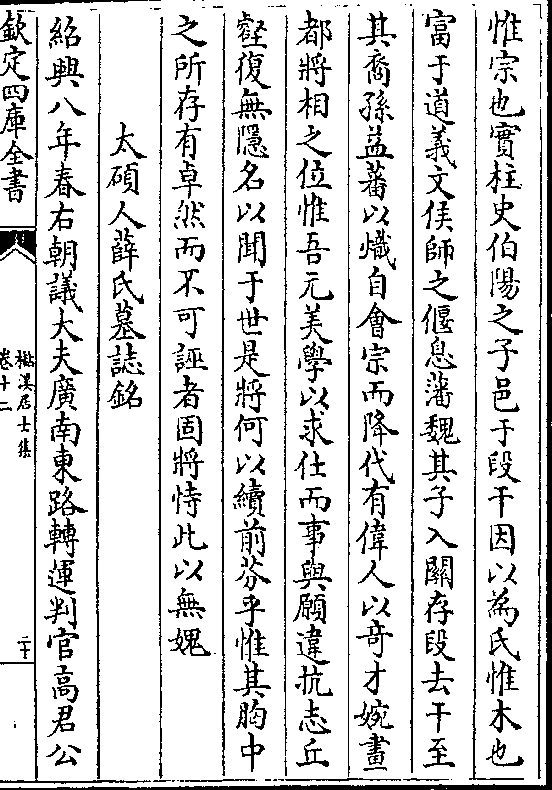 惟宗也實柱史伯陽之子邑于段干因以為氏惟木也
富于道義文侯師之偃息藩魏其子入關存段去干至
其裔孫益蕃以熾自會宗而降代有偉人以竒才婉畫
都將相之位惟吾元美學以求仕而事與願違抗志丘
壑復無隱名以聞于世是將何以續前芬乎惟其胸中
之所存有卓然而不可誣者固將恃此以無媿
太碩人薛氏墓誌銘
紹興八年春右朝議大夫廣南東路轉運判官高君公
欽定四庫全書
楳溪居士集
卷十二
二十